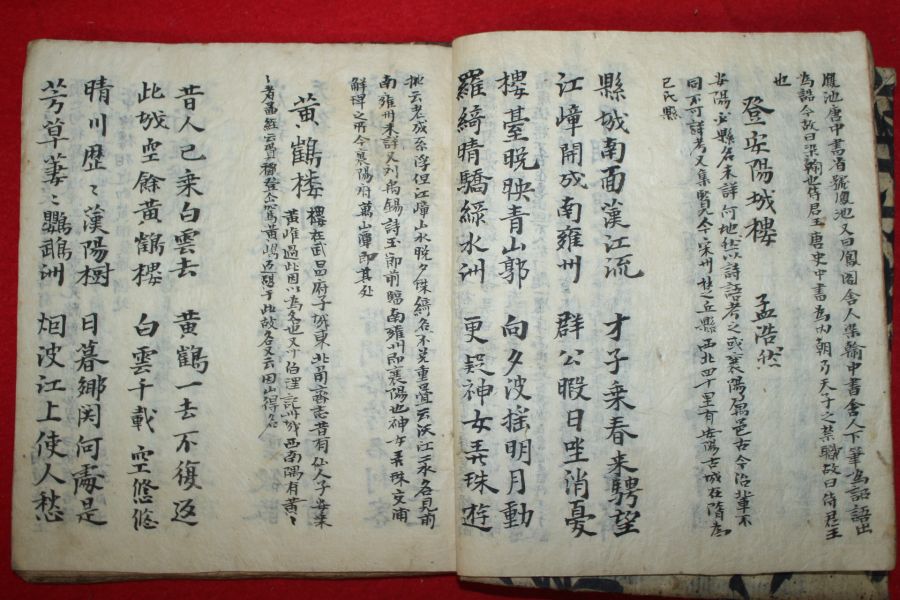 鳳池唐中書省號鳳池又曰鳳園舍人業翰中書舍人下筆為詔語出
為詔今故曰染翰也侍君王唐史中書為內朝乃天子之禁職故曰侍君王
也
登安陽城樓 孟浩然
安陽必縣名未詳何地然以詩語考之或襄陽屬邑古今沿革不
同不可詳考又集覽九今宋州楚丘縣西北四十里有安陽古城在隋為
已氏縣
縣城南面漢江流 才子乘春來騁望
江嶂開成南雍州 群公暇日坐消憂
樓臺晩映青山郭 向夕波搖明月動
羅綺晴驕綠水洲 更疑神女弄珠遊
老成系浮但江嶂山水晩夕綺名不免重疊云沃江二水名見前
南雍州未詳又劉禹錫詩玉即前臨南雍州即襄陽也神女弄珠交浦
解珮之所今襄陽府萬山潭即其處
黃鶴樓
樓在武昌府子城東北有齊志昔有仙人子安乘
黃雀過此因以為名也又伯理記州城西南隅有黃〻
〻者昌經云費褘登仙駕黃鶴返憩于此故名又云因山得名
昔人已乘白雲去 黃鶴一去不復返
此城空餘黃鶴樓 白雲千載空悠悠
晴川歷〻漢陽樹 日暮鄕関何處是
芳草萋〻鸚鵡洲 烟波江上使人愁